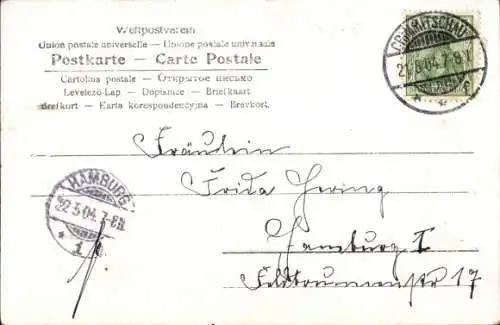 Weltpostverein
Union postale universelle — Unione postale universale
Postkarte — Carte Postale
Cartolina postale — Открытое письмо
Levelező-Lap — Dopisnice — Briefkaart
Brefkort — Karta korespondencyjna — Brevkort.
CRIMMITSCHAU
21.5.04.7-8N
* *
f
HAMBURG
22.5.04.7-8N.
* 1 *
Fräulein
Frida Hering
Hamburg I
Feldbrunnenstr 17